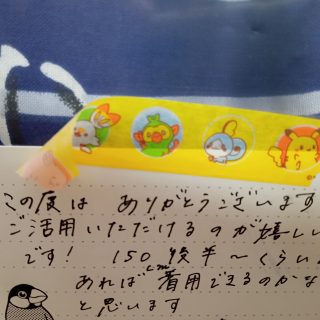 この度は ありがとうございます
ご活用いただけるのが嬉しい
です! 150後半〜くらい
あれば 着用できるのかな
と思います